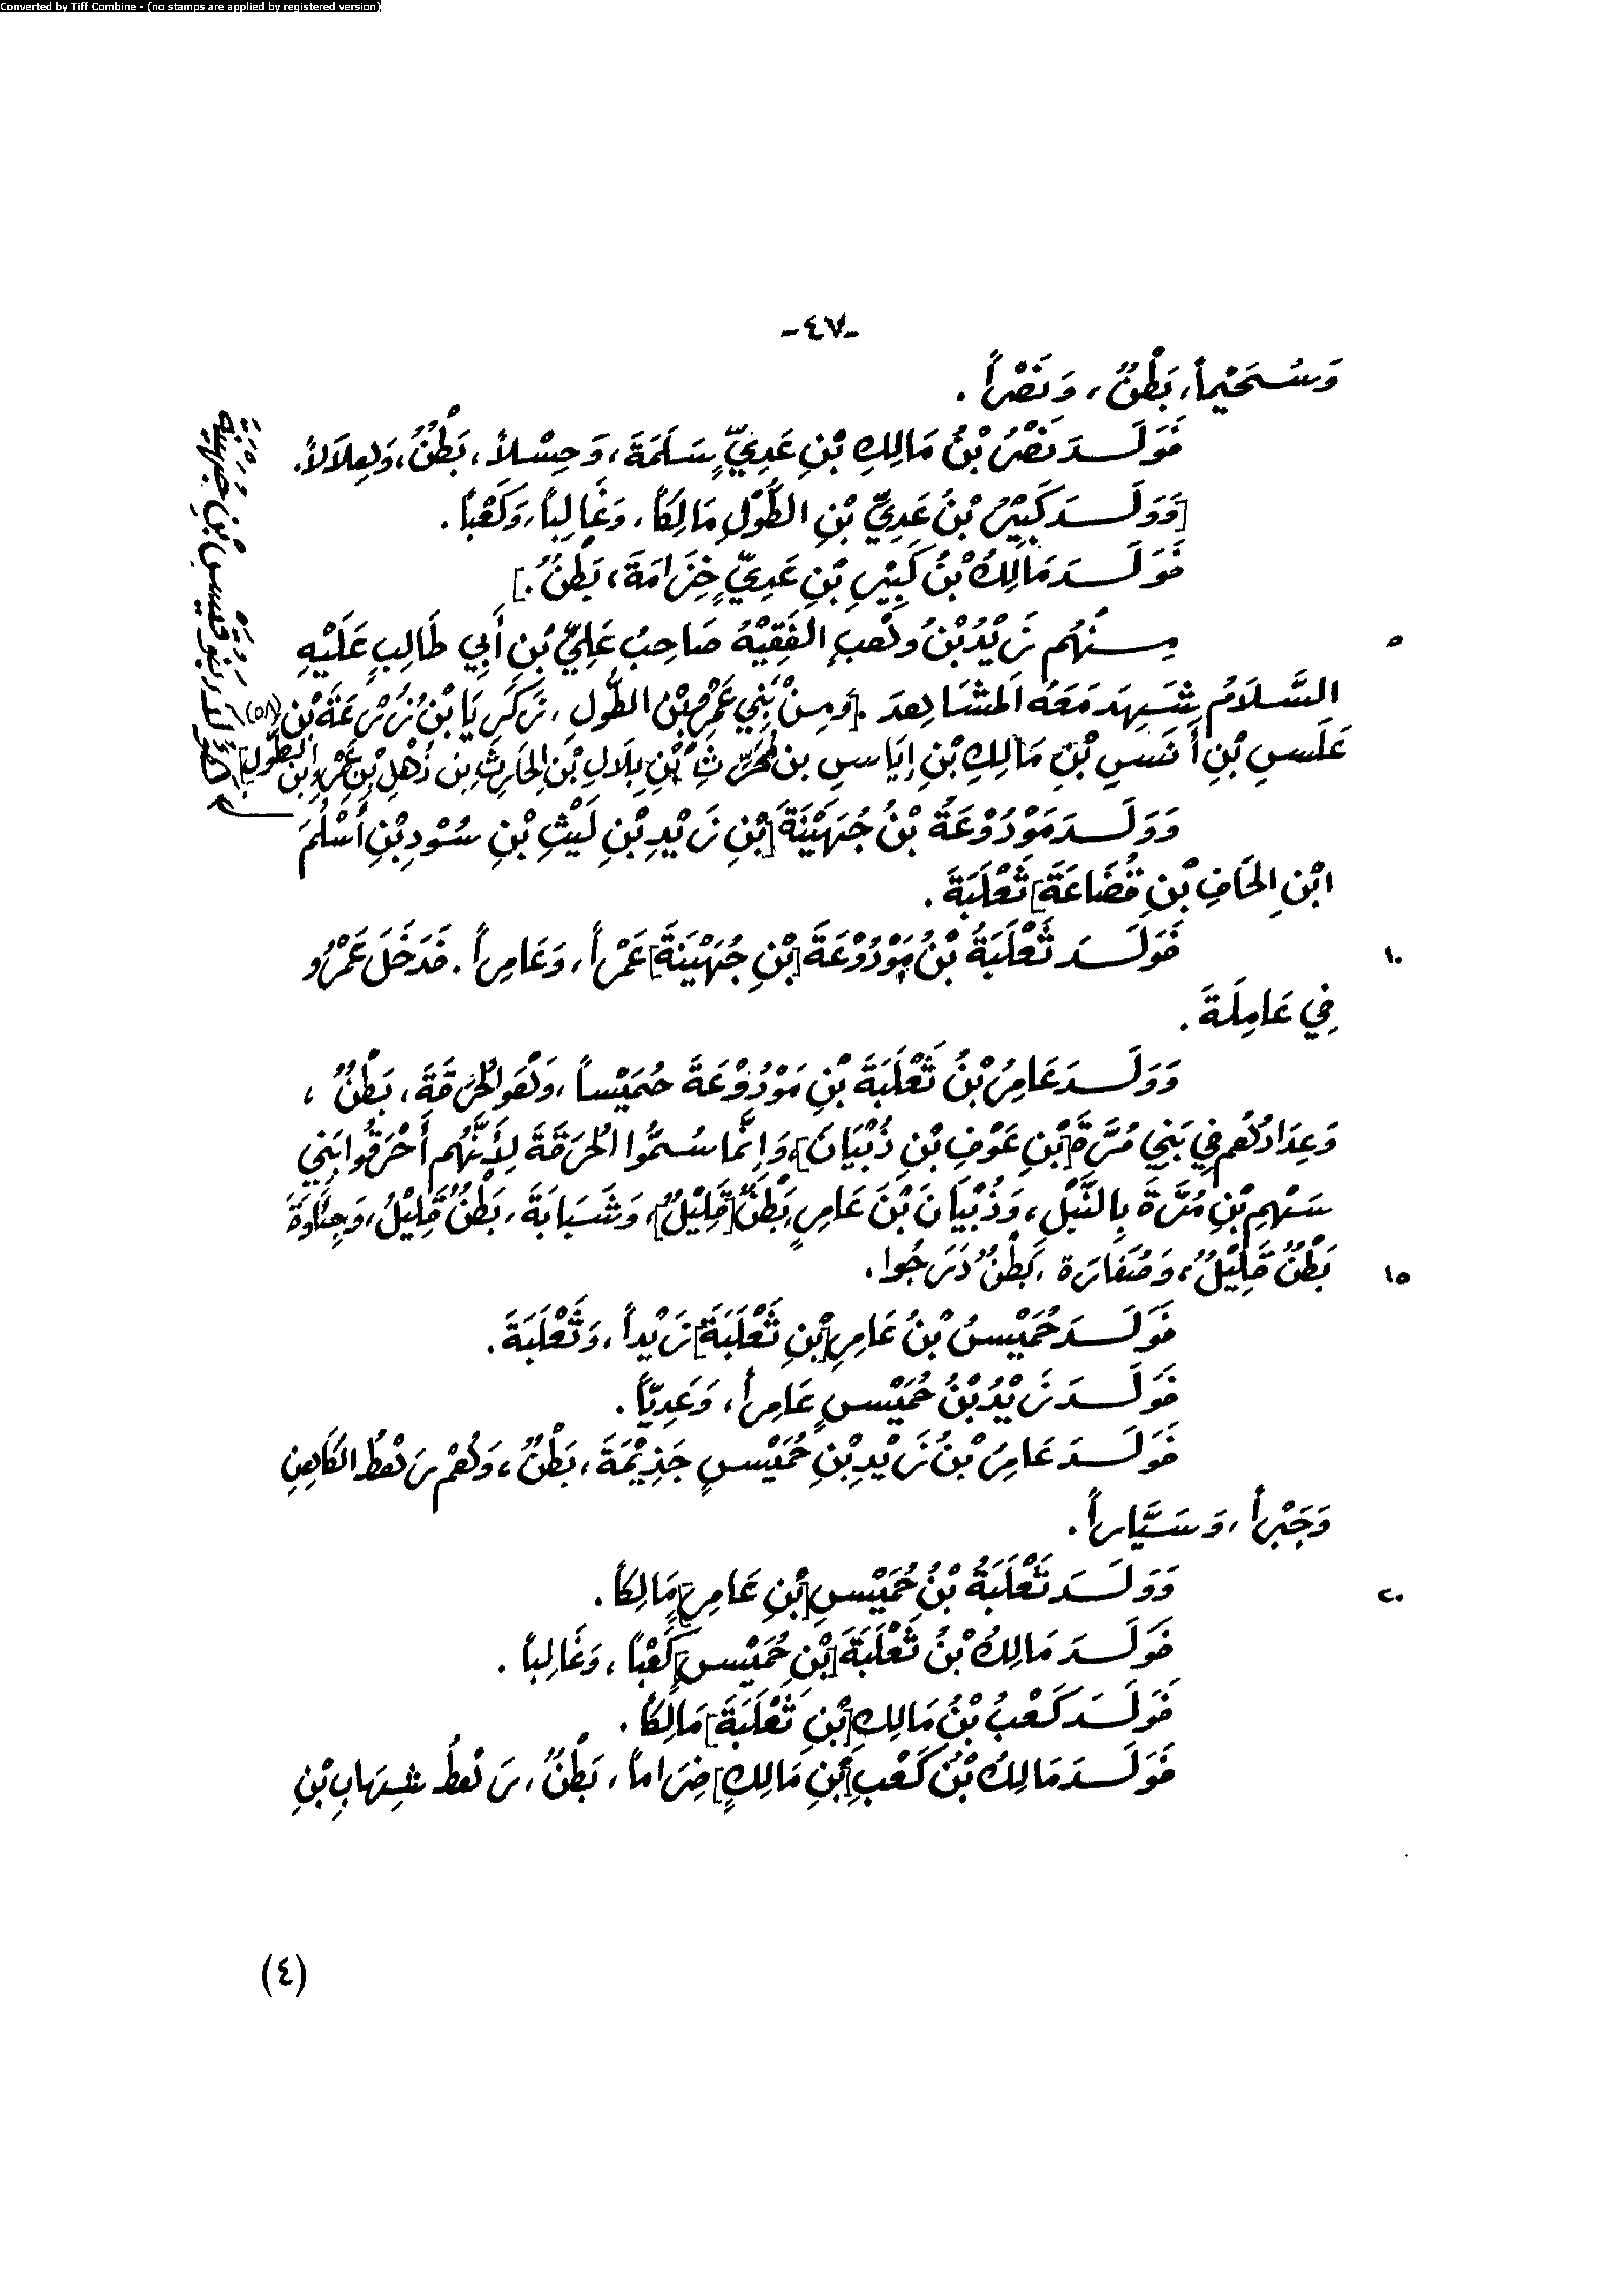 Converted by Tiff Combine - (no stamps are applied by registered version)
-٤٧-
وَسُحَيْماً، بَطْنٌ، وَنَصْراً.
فَوَلَدَ نَصْرُ بْنُ مَالِكِ بْنِ عَدِيٍّ سَلَمَةَ، وَحِسْلاً، بَطْنٌ، وَهِلَالاً.
[وَوَلَدَ كَبِيْرُ بْنُ عَدِيِّ بْنِ الطُّوْلِ مَالِكاً، وَغَالِباً، وَكَعْباً.
فَوَلَدَ مَالِكُ بْنُ كَبِيْرِ بْنِ عَدِيٍّ خِزَامَةَ، بَطْنٌ.]
٥
مِنْهُم زَيْدُ بْنُ وَهْبٍ الفَقِيْهُ صَاحِبُ عَلِيِّ بْنِ أَبِي طَالِبٍ عَلَيْهِ
السَّلَامُ شَهِدَ مَعَهُ المَشَاهِدَ. [وَمِنْ بَنِي عَمْرِو بْنِ الطُّولِ، زَكَرِيَا بْنُ زُرْعَةَ بْنِ (٥٨)
عَلَسِ بْنِ أَنَسِ بْنِ مَالِكِ بْنِ إِيَاسِ بن مُحَرِّثِ بْنِ بِلَالِ بْنِ الحَارِثِ بن ذُهْلِ بْنِ عَمْرِو ابن الطُّولِ]
هَؤُلَاءِ بَنُو قَيْسِ بْنِ جُهَيْنَةَ
وَوَلَدَ مَوْدُوْعَةُ بْنُ جُهَيْنَةَ [بْنِ زَيْدِ بْنِ لَيْثِ بْنِ سُوْدِ بْنِ أَسْلُمَ
ابْنِ الحَافِ بْنِ قُضَاعَةَ] ثَعْلَبَةَ.
١٠
فَوَلَدَ ثَعْلَبَةُ بْنُ مَوْدُوْعَةَ [بْنِ جُهَيْنَةَ] عَمْراً، وَعَامِراً. فَدَخَلَ عَمْرُو
فِي عَامِلَةَ.
وَوَلَدَ عَامِرُ بْنُ ثَعْلَبَةَ بْنِ مَوْدُوْعَةَ حُمَيْساً، وَهُوَ الحُرَقَةَ، بَطْنٌ،
وَعِدَادُهُم فِي بَنِي مُرَّةَ [بْنِ عَوْفِ بْنِ ذُبْيَانَ]، وَإِنَّمَا سُمُّوا الحُرَقَةَ لِأَنَّهُم أَحْرَقُوا بَنِي
سَهْمِ بْنِ مُرَّةَ بِالنَّبْلِ، وَذُبْيَانَ بْنَ عَامِرٍ بَطْنٌ [قَلِيْلٌ]، وَشَبَابَةَ، بَطْنٌ قَلِيْلٌ، وَجِئَاوَةَ
١٥
بَطْنٌ قَلِيْلٌ، وَصُفَارَة، بَطْنٌ دَرَجُوا.
فَوَلَدَ حُمَيْسُ بْنُ عَامِرِ [بْنِ ثَعْلَبَةَ] زَيْداً، وَثَعْلَبَةَ.
فَوَلَدَ زَيْدُ بْنُ حُمَيْسٍ عَامِراً، وَعَدِيّاً.
فَوَلَدَ عَامِرُ بْنُ زَيْدِ بْنِ حُمَيْسٍ جَذِيْمَةَ، بَطْنٌ، وَهُمْ رَهْطُ الكَاهِنِ
وَجَبْراً، وَسَيَّاراً.
٢٠
وَوَلَدَ ثَعْلَبَةُ بْنُ حُمَيْسِ [بْنِ عَامِرٍ] مَالِكاً.
فَوَلَدَ مَالِكُ بْنُ ثَعْلَبَةَ [بْنِ حُمَيْسٍ] كَعْباً، وَغَالِباً.
فَوَلَدَ كَعْبُ بْنُ مَالِكِ [بْنِ ثَعْلَبَةَ] مَالِكاً.
فَوَلَدَ مَالِكُ بْنُ كَعْبِ [بْنِ مَالِكٍ] ضِرَاماً، بَطْنٌ، رَهْطُ شِهَابِ بْنِ
(٤)